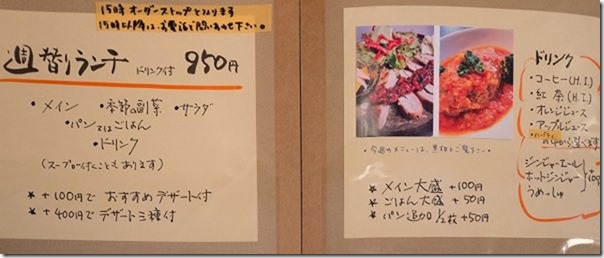 15時 オーダーストップとなります
15時以降は、お電話で問い合わせ下さい。
週替りランチ ドリンク付 950円
・メイン ・季節の副菜 ・サラダ
・パン又はごはん
・ドリンク
(スープが付くこともあります)
★ +100円で おすすめデザート付
★ +400円でデザート三種付
・今週のメニューは、黒板をご覧下さい・
★ メイン大盛 +100円
★ ごはん大盛 +50円
★ パン追加 1/2枚 +50円
ドリンク
・コーヒー(H.I)
・紅茶(H.I)
・オレンジジュース
・アップルジュース
の中から選べます
ジンジャーエール
ホットジンジャー
うめっしゅ
+100